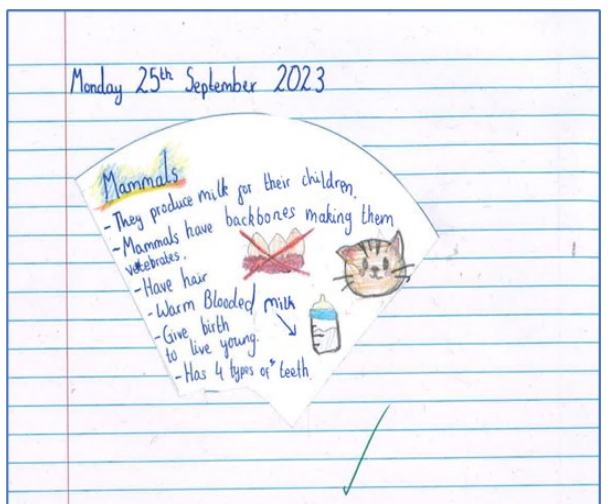 Monday 25th September 2023
Mammals
- They produce milk for their children.
- Mammals have backbones making them
vetebrates.
- Have hair
- Warm Blooded
milk
- Give birth
to live young.
- Has 4 types of teeth.